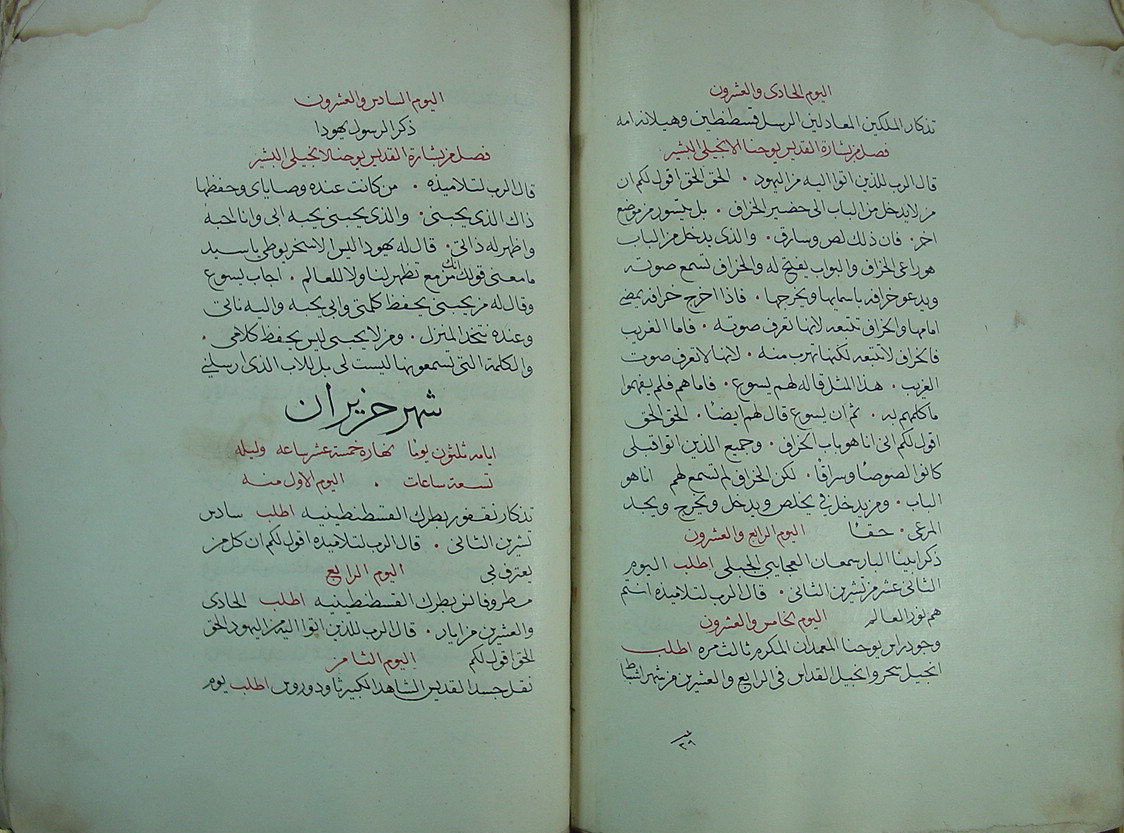 اليوم الحادى والعشرون
تذكار الملكين المعادلين الرسل قسطنطين وهيلانه امه
فصل من بشارة القديس يوحنا الانجيلى البشير
قال الرب للذين اتوا اليه من اليهود . الحق الحق اقول لكم ان
من لا يدخل من الباب الى حضير الخراف . بل يتسور من موضع
اخر . فان ذلك لص وسارق . والذى يدخل من الباب
هو راعى الخراف والبواب يفتح له والخراف تسمع صوته
ويدعو خرافه باسمايها ويخرجها . فاذا اخرج خرافه يمضى
امامها والخراف تتبعه لانها تعرف صوته . فاما الغريب
فالخراف لا تتبعه لكنها تهرب منه . لانها لا تعرف صوت
الغريب . هذا المثل قاله لهم يسوع . فاما هم فلم يفهموا
ما كلمهم به . ثم ان يسوع قال لهم ايضًا . الحق الحق
اقول لكم انى انا هو باب الخراف . وجميع الذين اتوا قبلى
كانوا لصوصًا وسراقًا . لكن الخراف لم تسمع لهم انا هو
الباب . ومن يدخل بى يخلص ويدخل ويخرج ويجد
المرعى . حقًا اليوم الرابع والعشرون
ذكر ابينا البار سمعان العجايبى الجبلى اطلب اليوم
الثانى عشر من تشرين الثانى . قال الرب لتلاميذه انتم
هم نور العالم اليوم الخامس والعشرون
وجود راس يوحنا المعمدان المكرم ثالث مره اطلب
انجيل سحر وانجيل القداس فى الرابع والعشرين من شهر شباط
اليوم السادس والعشرون
ذكر الرسول يهودا
فصل من بشارة القديس يوحنا الانجيلى البشير
قال الرب لتلاميذه . من كانت عنده وصاياى وحفظها
ذاك الذى يحبنى . والذى يحبنى يحبه ابى وانا احبه
واظهر له ذاتى . قال له يهودا ليس الاسخريوطى يا سيد
ما معنى قولك انك مزمع تظهر لنا ولا للعالم . اجاب يسوع
وقال له من يحبنى يحفظ كلمتى وابى يحبه واليه ناتى
وعنده نتخذ المنزل . ومن لا يحبنى ليس يحفظ كلامى .
والكلمة التى تسمعونها ليست لى بل للاب الذى ارسلنى
شهر حزيران
ايامه ثلثون يومًا نهاره خمسة عشر ساعه وليله
تسعة ساعات . اليوم الاول منه
تذكار نقفور بطرك القسطنطينيه اطلب سادس
تشرين الثانى . قال الرب لتلاميذه اقول لكم ان كل من
يعترف بى اليوم الرابع
مطروفانوس بطرك القسطنطينيه اطلب الحادى
والعشرين من ايار . قال الرب للذين اتوا اليه من اليهود الحق
الحق اقول لكم اليوم الثامن
نقل جسد القديس الشاهد الكبير ثاودوروس اطلب يوم